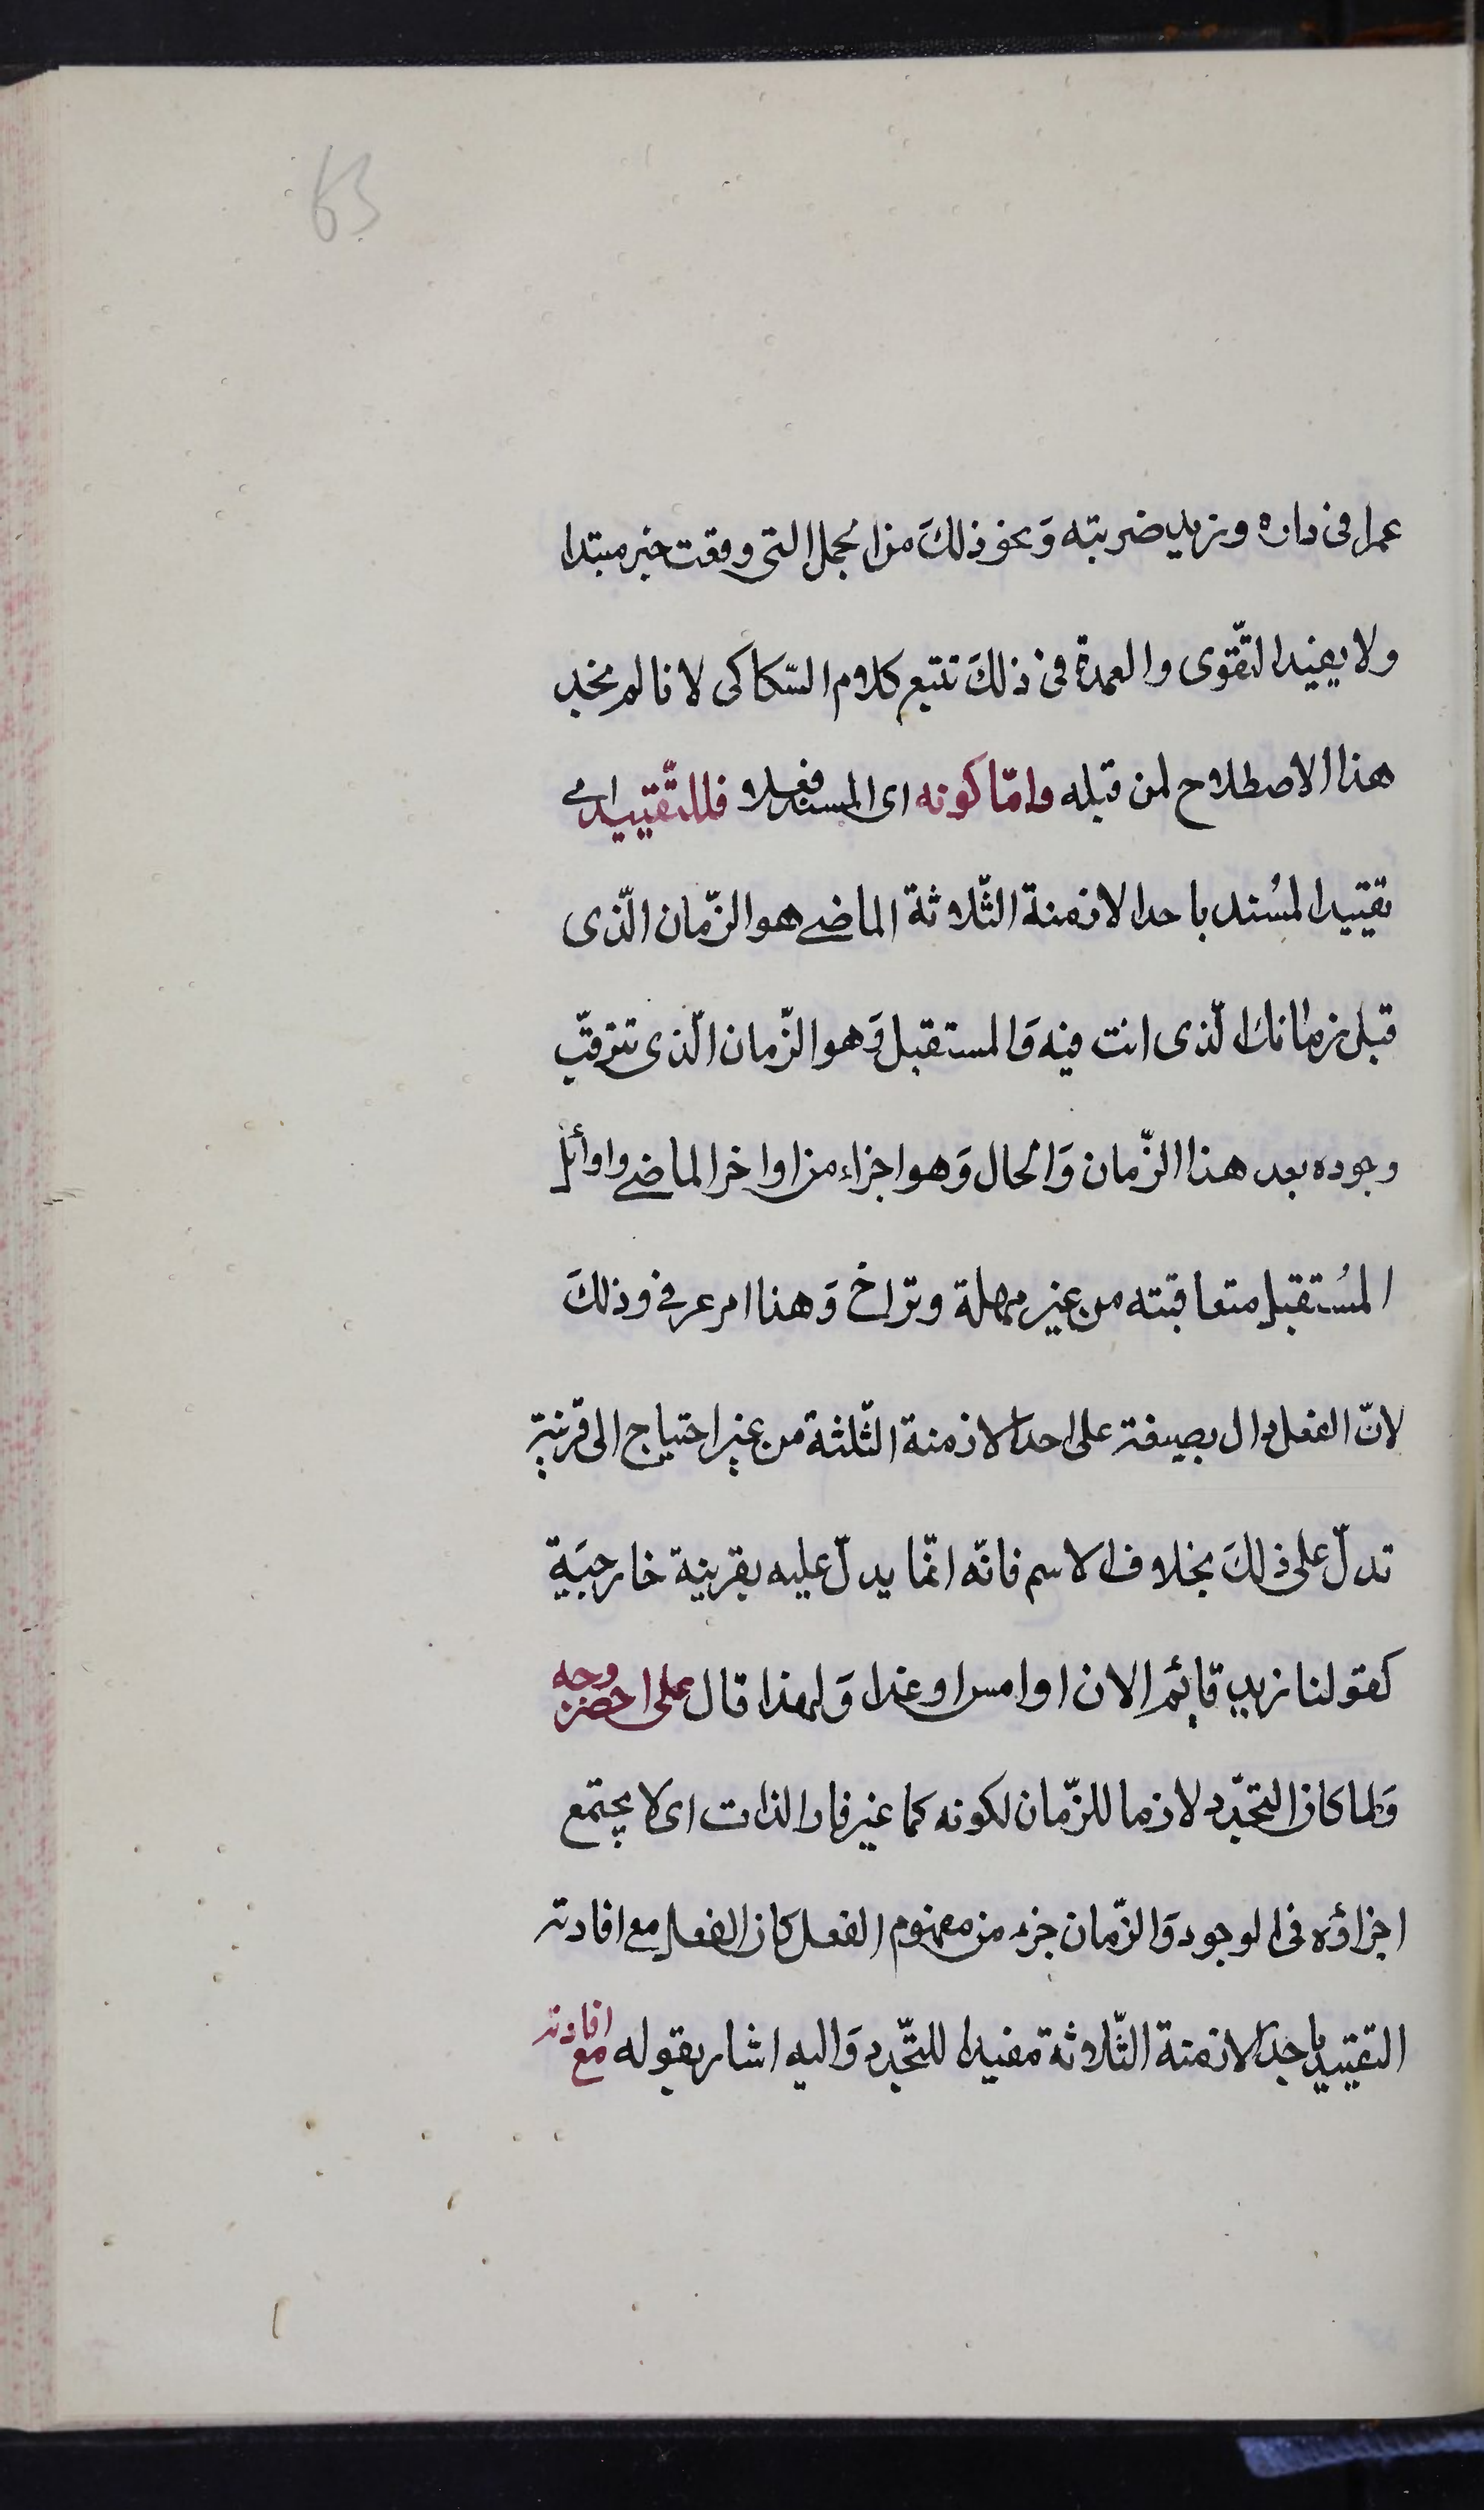 63
عمرا فى داره وزيد ضربته وَنحو ذلكَ من الجمل التى وقعت خبر مبتدا
ولا يفيد التّقوى والعمدة فى ذلكَ تتبع كلام السّكاكى لانا لم نجد
هذا الاصطلاح لمن قبله وامّا كونه اى المسند فعلا فللتّقييد اى
تقييد المُسند باحد الازمنة الثّلاثة الماضى هو الزّمان الّذى
قبل زمانك الّذى انت فيه وَالمستقبل وَهو الزّمان الّذى تترقّب
وجوده بعد هذا الزّمان وَالحال وَهو اجزاء من اواخر الماضى واوائل
المُستقبل متعاقبته من غير مهلة وتراخ وَهذا امر عرفى وذلكَ
لانّ الفعل دال بصيغته على احد الازمنة الثّلثة من غير احتياج الى قرينة
تدلّ على ذلكَ بخلاف الاسم فانّه انّما يدلّ عليه بقرينة خارجيَة
كقولنا زيد قائم الان او امس او غدا وَلهذا قال على اخضر وجه
وَلما كان التجّدد لازما للزّمان لكونه كما غير قار الذات اى لا يجتمع
اجزاؤه فى الوجود وَالزّمان جزء من مفهوم الفعل كان الفعل مع افادته
التقييد باحد الازمنة الثّلاثة مفيدا للتّجدد وَاليه اشار بقوله مع افادته